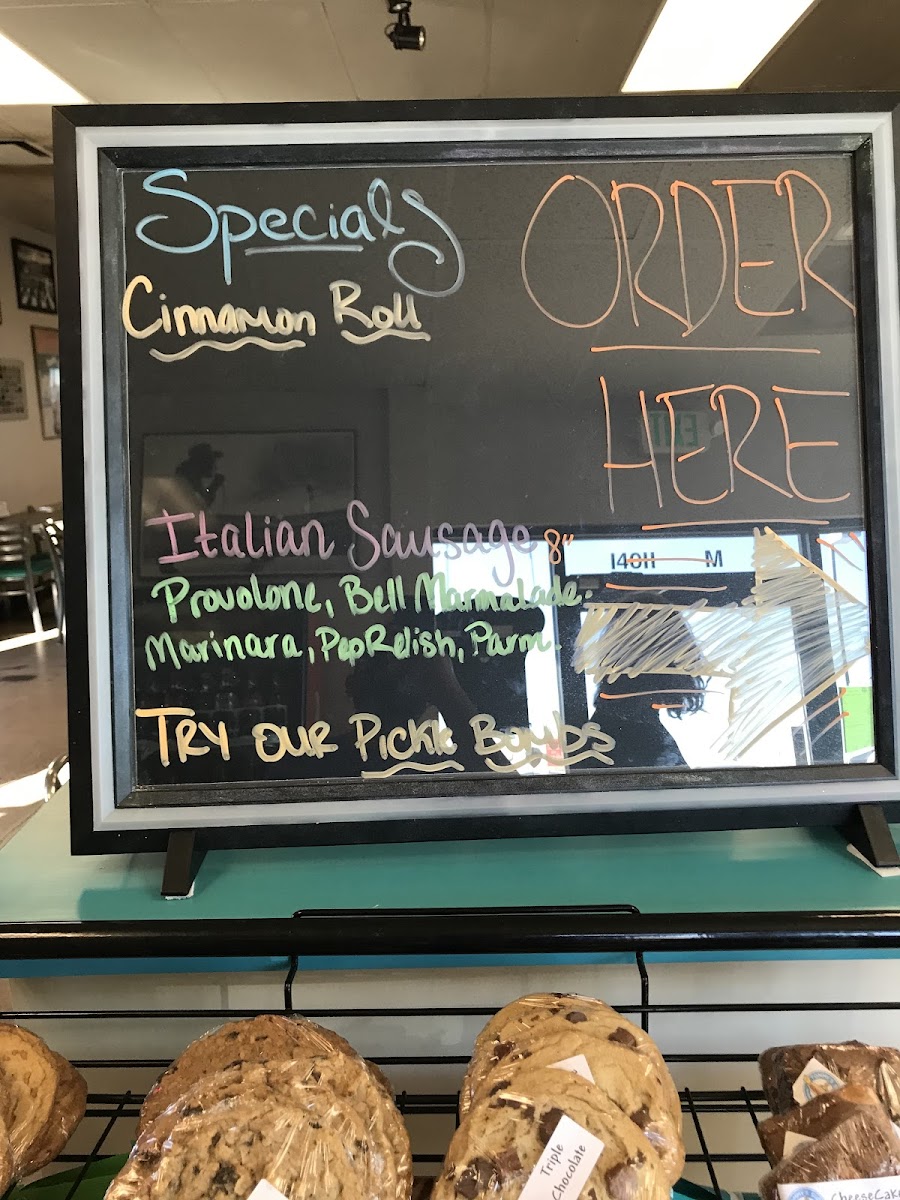 Specials
Cinnamon Roll
ORDER
HERE
EXIT
Italian Sausage 8"
Provolone, Bell Marmalade.
Marinara, PepRelish, Parm.
TRY OUR Pickle Bombs
Triple
Chocolate
CheeseCake